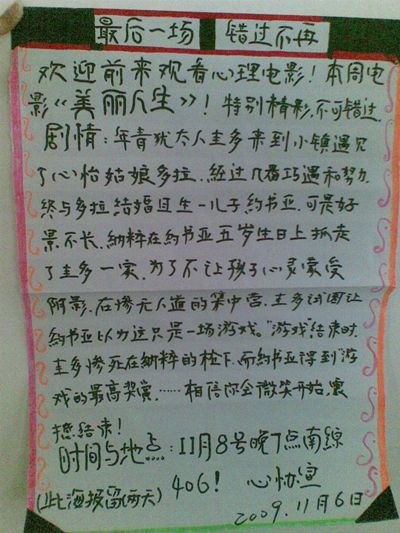 最后一场 错过不再
欢迎前来观看心理电影！本周电
影《美丽人生》！特别精彩，不可错过
剧情：年青犹太人圭多来到小镇遇见
了心怡姑娘多拉，经过几番巧遇和努力
终与多拉结婚且生一儿子约书亚，可是好
景不长，纳粹在约书亚五岁生日上抓走
了圭多一家，为了不让孩子心灵蒙受
阴影，在惨无人道的集中营，圭多试图让
约书亚以为这只是一场游戏。"游戏"结束时，
圭多惨死在纳粹的枪下，而约书亚得到"游
戏的最高奖赏，……相信你会微笑开始，
结束！
时间与地点：11月8号晚7点南综
406！ 心协宣
(此海报留两天)
2009.11月6日